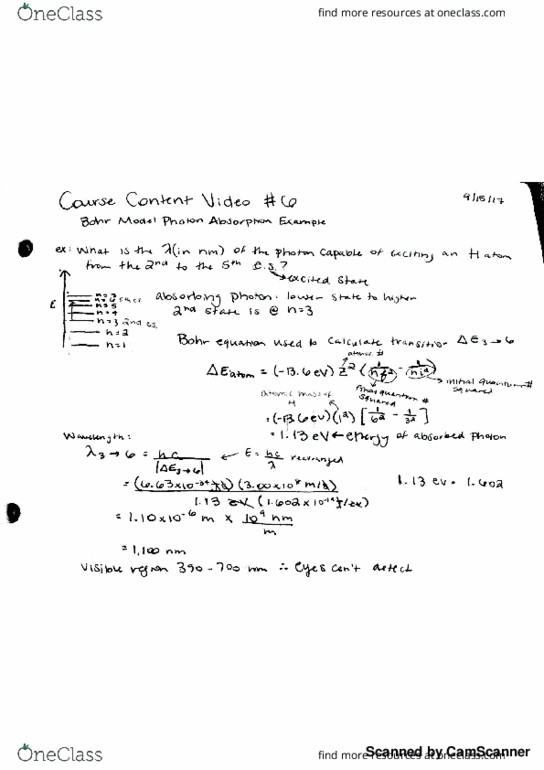 OneClass find more resources at oneclass.com
Course Content Video #6 9/15/17
Bohr Model Photon Absorption Example
ex: What is the λ(in nm) of the photon capable of exciting an H atom
from the 2nd to the 5th e.s.?
→ excited state
E
n=7
n=6 5th es
n=5
n=4
n=3 2nd es
n=2
n=1
absorbing photon: lower state to higher
2nd state is @ n=3
Bohr equation used to calculate transition ΔE 3→6
atomic #
ΔE atom = (-13.6 eV) Z² (1/nf² - 1/ni²) → initial quantum # squared
final quantum # squared
atomic mass of H
= (-13.6 eV)(1²) [1/6² - 1/3²]
= 1.13 eV ← energy of absorbed photon
Wavelength:
λ 3→6 = hc/|ΔE 3→6| ← E = hc/λ rearranged
= (6.63x10⁻³⁴ J·s)(3.00x10⁸ m/s) / 1.13 eV (1.602x10⁻¹⁹ J/eV)
1.13 eV · 1.602
= 1.10x10⁻⁶ m x 10⁹ nm/m
= 1,100 nm
Visible region 390-700 nm ∴ eyes can't detect
Scanned by CamScanner
OneClass find more resources at oneclass.com